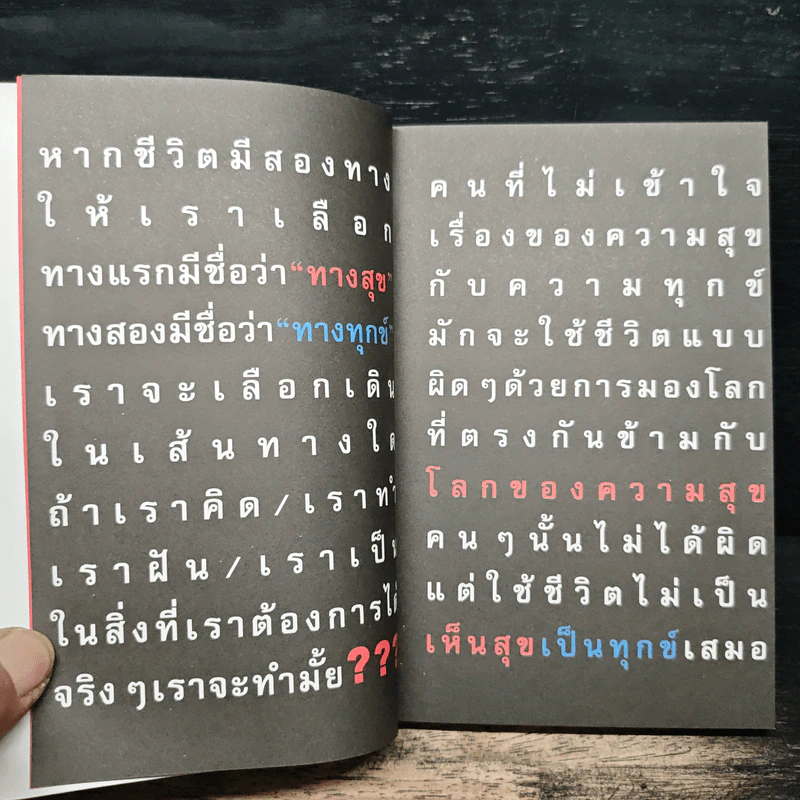 หากชีวิตมีสองทาง
ให้เราเลือก
ทางแรกมีชื่อว่า“ทางสุข”
ทางสองมีชื่อว่า“ทางทุกข์”
เราจะเลือกเดิน
ในเส้นทางใด
ถ้าเราคิด/เราทำ
เราฝัน/เราเป็น
ในสิ่งที่เราต้องการได้
จริงๆเราจะทำมั้ย???
คนที่ไม่เข้าใจ
เรื่องของความสุข
กับความทุกข์
มักจะใช้ชีวิตแบบ
ผิดๆด้วยการมองโลก
ที่ตรงกันข้ามกับ
โลกของความสุข
คนๆนั้นไม่ได้ผิด
แต่ใช้ชีวิตไม่เป็น
เห็นสุขเป็นทุกข์เสมอ